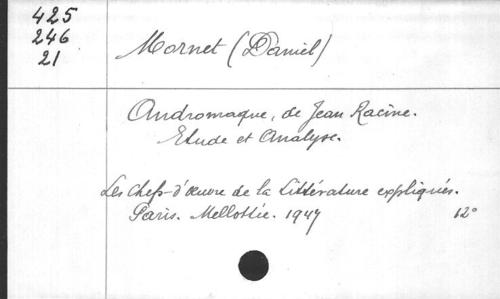 425
246
21
Mornet (Daniel)
Andromaque, de Jean Racine.
Etude et Analyse.
Les chefs-d'œuvre de la Littérature expliqués.
Paris. Mellottée. 1947
12°